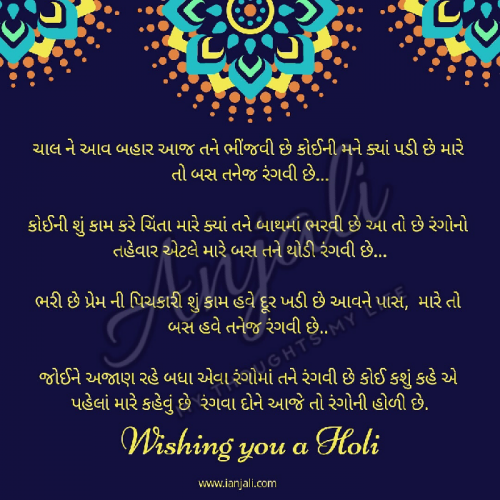 ચાલ ને આવ બહાર આજ તને ભીંજવી છે કોઈની મને ક્યાં પડી છે મારે
તો બસ તનેજ રંગવી છે...
કોઈની શું કામ કરે ચિંતા મારે ક્યાં તને બાથમાં ભરવી છે આ તો છે રંગોનો
તહેવાર એટલે મારે બસ તને થોડી રંગવી છે...
ભરી છે પ્રેમ ની પિચકારી શું કામ હવે દૂર ખડી છે આવને પાસ, મારે તો
બસ હવે તનેજ રંગવી છે..
જોઈને અજાણ રહે બધા એવા રંગોમાં તને રંગવી છે કોઈ કશું કહે એ
પહેલાં મારે કહેવું છે રંગવા દોને આજે તો રંગોની હોળી છે.
Wishing you a Holi
www.ianjali.com
Anjali
MY THOUGHTS MY LIFE